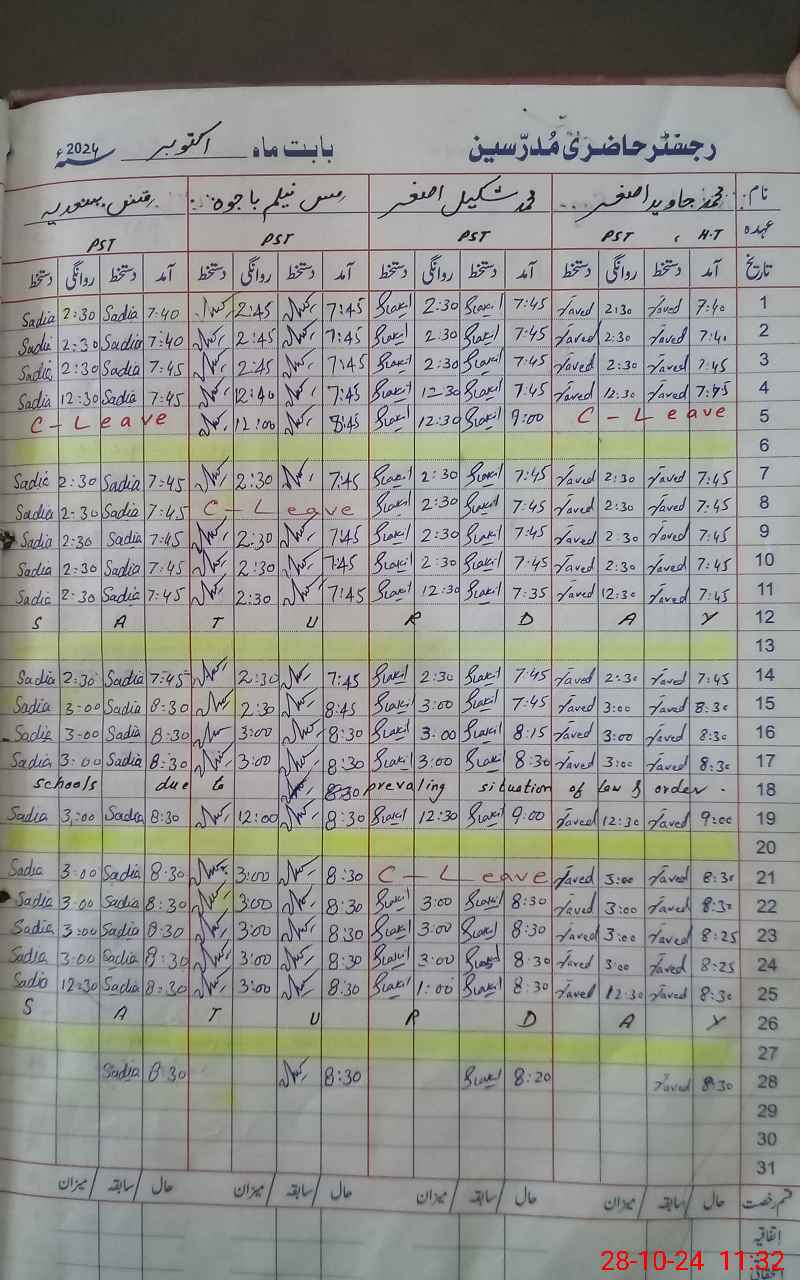 رجسٹر حاضری مُدرّسین بابت ماہ اکتوبر سنہ 2024ء
نام: محمد جاوید اصغر محمد شکیل اصغر مس نیلم باجوہ مس سعدیہ
عہدہ H.T , PST PST PST PST
تاریخ آمد دستخط روانگی دستخط آمد دستخط روانگی دستخط آمد دستخط روانگی دستخط آمد دستخط روانگی دستخط
1 7:40 Javed 2:30 Javed 7:45 Shakil 2:30 Shakil 7:45 2:45 7:40 Sadia 2:30 Sadia
2 7:40 Javed 2:30 Javed 7:45 Shakil 2:30 Shakil 7:45 2:45 7:40 Sadia 2:30 Sadia
3 7:45 Javed 2:30 Javed 7:45 Shakil 2:30 Shakil 7:45 2:45 7:45 Sadia 2:30 Sadia
4 7:45 Javed 12:30 Javed 7:45 Shakil 12:30 Shakil 7:45 12:40 7:45 Sadia 12:30 Sadia
5 C - Leave 9:00 Shakil 12:30 Shakil 8:45 12:00 C - Leave
6
7 7:45 Javed 2:30 Javed 7:45 Shakil 2:30 Shakil 7:45 2:30 7:45 Sadia 2:30 Sadia
8 7:45 Javed 2:30 Javed 7:45 Shakil 2:30 Shakil C - Leave 7:45 Sadia 2:30 Sadia
9 7:45 Javed 2:30 Javed 7:45 Shakil 2:30 Shakil 7:45 2:30 7:45 Sadia 2:30 Sadia
10 7:45 Javed 2:30 Javed 7:45 Shakil 2:30 Shakil 7:45 2:30 7:45 Sadia 2:30 Sadia
11 7:45 Javed 12:30 Javed 7:35 Shakil 12:30 Shakil 7:45 2:30 7:45 Sadia 2:30 Sadia
12 S A T U R D A Y
13
14 7:45 Javed 2:30 Javed 7:45 Shakil 2:30 Shakil 7:45 2:30 7:45 Sadia 2:30 Sadia
15 8:30 Javed 3:00 Javed 7:45 Shakil 3:00 Shakil 8:45 2:30 8:30 Sadia 3:00 Sadia
16 8:30 Javed 3:00 Javed 8:15 Shakil 3:00 Shakil 8:30 3:00 8:30 Sadia 3:00 Sadia
17 8:30 Javed 3:00 Javed 8:30 Shakil 3:00 Shakil 8:30 3:00 8:30 Sadia 3:00 Sadia
18 schools due to 8:30 prevaling situation of law & order .
19 9:00 Javed 12:30 Javed 9:00 Shakil 12:30 Shakil 8:30 12:00 8:30 Sadia 3:00 Sadia
20
21 8:30 Javed 3:00 Javed C - Leave 8:30 3:00 8:30 Sadia 3:00 Sadia
22 8:30 Javed 3:00 Javed 8:30 Shakil 3:00 Shakil 8:30 3:00 8:30 Sadia 3:00 Sadia
23 8:25 Javed 3:00 Javed 8:30 Shakil 3:00 Shakil 8:30 3:00 8:30 Sadia 3:00 Sadia
24 8:25 Javed 3:00 Javed 8:30 Shakil 3:00 Shakil 8:30 3:00 8:30 Sadia 3:00 Sadia
25 8:30 Javed 12:30 Javed 8:30 Shakil 1:00 Shakil 8:30 3:00 8:30 Sadia 12:30 Sadia
26 S A T U R D A Y
27
28 8:30 Javed 8:20 Shakil 8:30 8:30 Sadia
29
30
31
قسم رخصت حال / سابقہ / میزان حال / سابقہ / میزان حال / سابقہ / میزان حال / سابقہ / میزان
اتفاقیہ
28-10-24 11:32